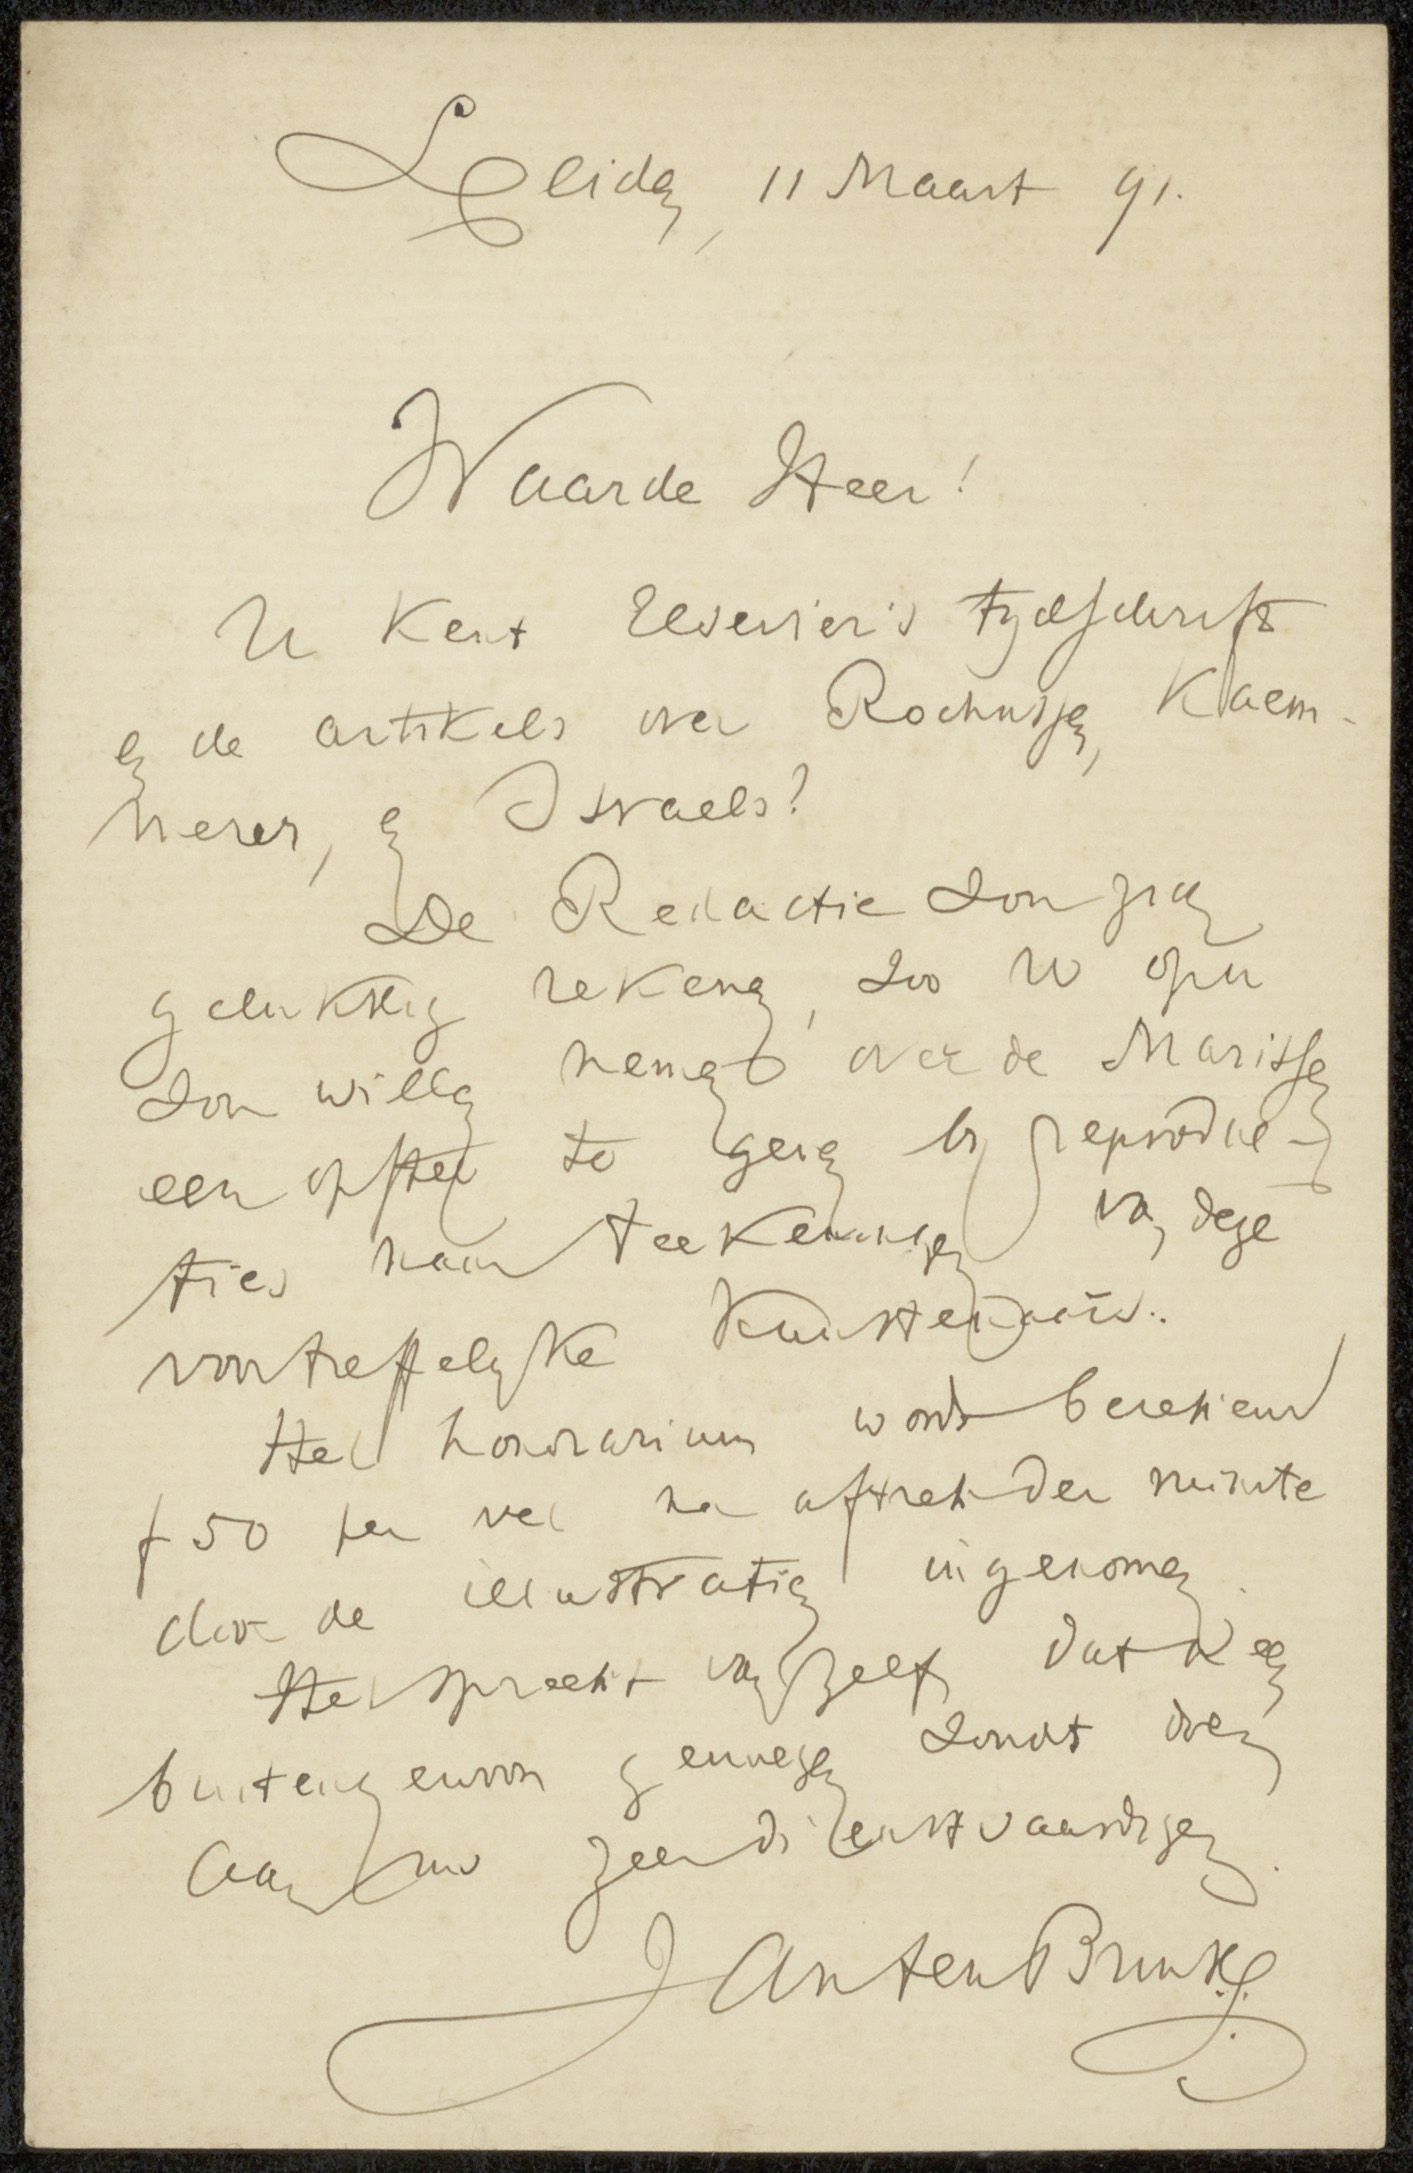 Leiden, 11 Maart 91.
Waarde Heer!
U kent Elsevier's tydschrift
en de artikels over Rochussen, Kaem-
merer, en Israels?
De Redactie zou zich
gelukkig rekenen, zoo U op u
zou willen nemen over de Marissen
een opstel te geven by reproduc-
ties naar teekeningen van deze
voortreffelyke kunstenaars.
Het honorarium wordt berekend
f 50 per vel na aftrek der ruimte
door de illustratien ingenomen.
Het spreekt van zelf, dat U een
buitengewoon genoegen zoudt doen
aan uw zeer dienstvaardigen
Jan ten Brink